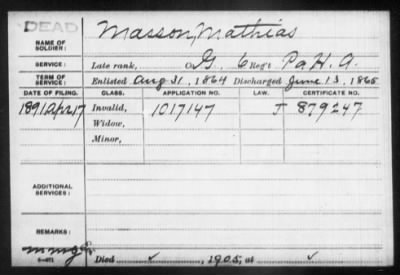 DEAD
NAME OF SOLDIER: Masson, Mathias
SERVICE: Late rank, Co. G, 6 Reg't Pa H. A.
TERM OF SERVICE: Enlisted Aug 31, 1864 Discharged June 13, 1865
DATE OF FILING. CLASS. APPLICATION NO. LAW. CERTIFICATE NO.
1891 Apr 17 Invalid, 1017147 J 879247
Widow,
Minor,
ADDITIONAL SERVICES:
REMARKS:
Died ✓, 1905, at ✓